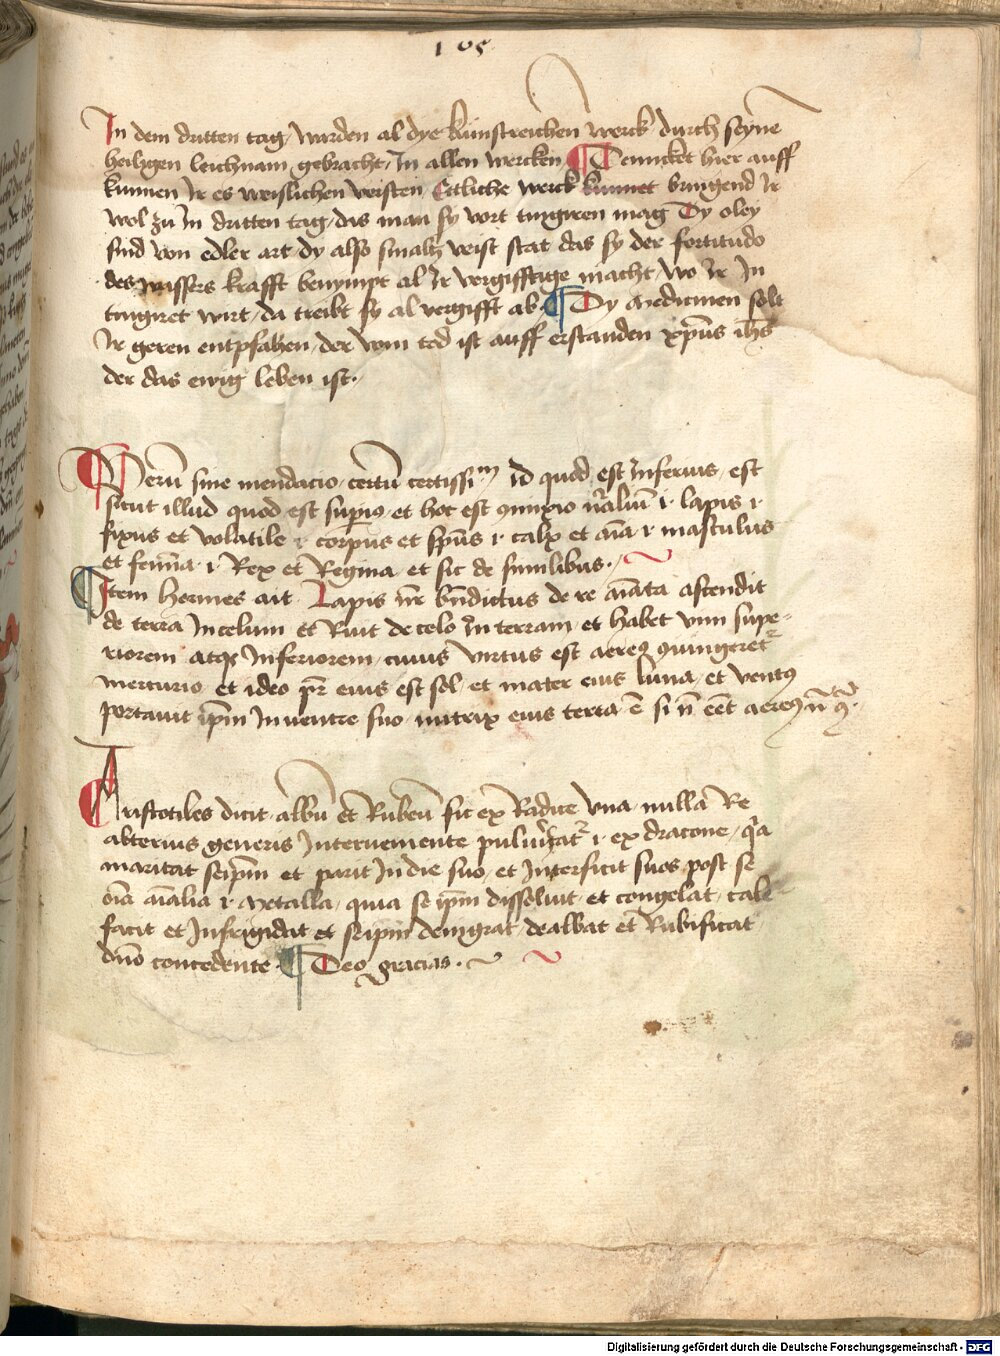 105
In dem dritten tag / wurden al dye kunstreichen werck durch seyne
heiligen leichnam gebracht / In allen wercken ¶ Deuncket hier auff
kunnen Ir es weyslichen veisten Etliche werck kunnet bringend Ir
wol zu In dritten tag / das man sy vort tingiren mag Dy oley
sind von edler art dy also smaltz veist stat das sy der fortitudo
des wassers krafft benympt al Ir vergifftige macht / wo Ir In
tingiret wirt / da treibt sy al vergifft ab ¶ Dy medicinen solt
Ir geren entpfahen / der vom tod ist auff erstanden xp̄us ih̄s
der das ewig leben ist.
Verū sine mendacio / certū certissiᵐ Id quod est Inferius / est
sicut illud quod est supiꝰ / et hoc est ꝯiunxio nr̄aliū ⁊ lapis ⁊
fixus et volatile ⁊ corpus et sp̄us ⁊ calx et aīa ⁊ masculus
et femīa ⁊ Rex et Regina et sic de similibus.
Item hermes ait Lapis nr̄ bn̄dictus de re aīata ascendit
de terra In celum et Ruit de celo In terram / et habet vim supe-
riorem atqꝫ Inferiorem / cuius virtus est aereꝰ ꝯiungeret᷑
mercurio et ideo pr̄ eius est sol / et mater eius luna / et ventꝰ
portauit ip̄m In ventre suo / nutrix eius terra ē si n̄ eēt aereꝰ n̄ ꝯ
Aristotiles dicit albū et Rubeū fit ex Radice vna / nulla Re
alterius generis Interueniente puluīzat᷑ ⁊ ex dracone / qͥa
maritat seip̄m et parit In die suo / et Interficit suos post se
oīa aīalia ⁊ Metalla / quia se ip̄m dissoluit et congelat / cale
facit et Infrigidat et seip̄m denigrat / dealbat et Rubificat
dn̄o concedente ¶ Deo gracias.
Digitalisierung gefördert durch die Deutsche Forschungsgemeinschaft - DFG